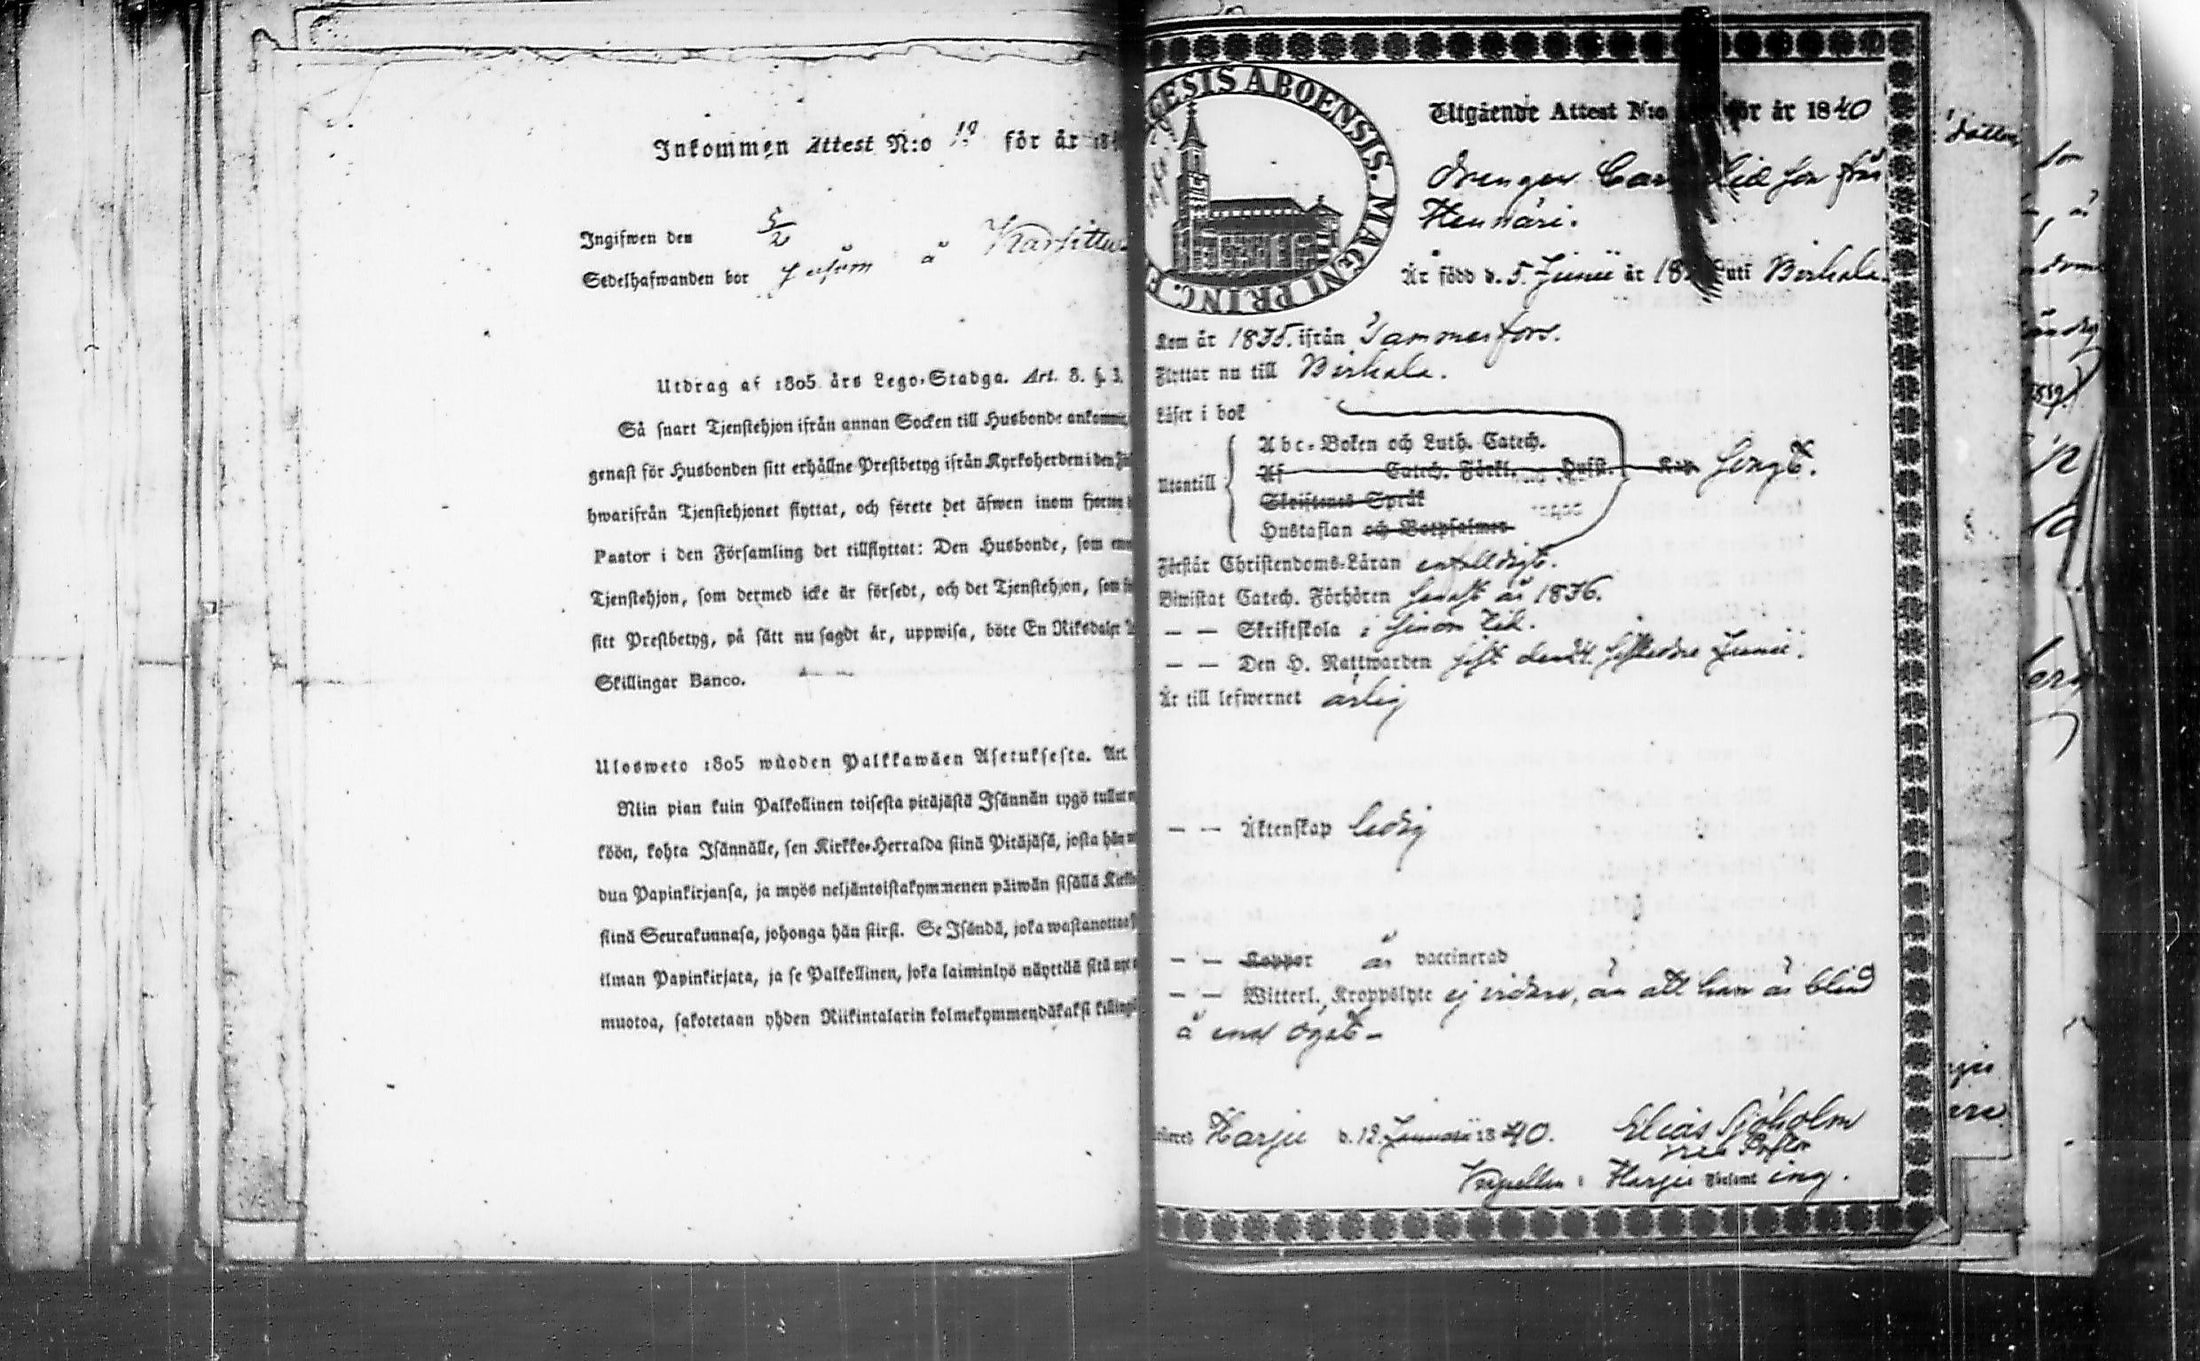 Inkommen Attest N:o 19 för år 18
Ingifwen den 5/2
Sedelhafwanden bor å
Utdrag af 1805 års Lego-Stadga. Art. 8. §. 3.
Så snart Tjenstehjon ifrån annan Socken till Husbonde
genast för Husbonden sitt erhållne Prestbetyg ifrån Kyrkoherden i den
hwarifrån Tjenstehjonet flyttat, och förete det äfwen inom
Pastor i den Församling det tillflyttat: Den Husbonde, som
Tjenstehjon, som dermed icke är försedt, och det Tjenstehjon, som
sitt Prestbetyg, på sätt nu sagdt är, uppwisa, böte En Riksdaler
Skillingar Banco.
Ulosweto 1805 wuoden Palkkawäen Asetuksesta. Art.
Niin pian kuin Palkollinen toisesta pitäjästä Isännän tygö tullut
köön, kohta Isännälle, sen Kirkko-Herralda siinä Pitäjäsä, josta hän
dun Papinkirjansa, ja myös neljäntoistakymmenen päiwän sisällä
siinä Seurakunnasa, johonga hän siirsi. Se Isändä, joka
ilman Papinkirjata, ja se Palkollinen, joka laiminlyö näyttää sitä
muotoa, sakotetaan yhden Riikintalarin kolmekymmendäkaksi
ABOENSIS. MAGNI PRINC.
Utgående Attest N:o för år 1840
Drengen från
Hennäri.
Är född d. 5 Junii år 18 uti Birkala.
Kom år 1835. ifrån Tammerfors.
Flyttar nu till Birkala.
Läser i bok
Utantill
Abc-Boken och Luth. Catech.
Af Catech. Förkl. Hufst. Kap.
Skriftenes Språk
Hustaflan och Botpsalmer
Förstår Christendoms-Läran enfalldigt.
Biwistat Catech. Förhören senast år 1836.
— — Skriftskola i sinom tid.
— — Den H. Nattwarden sist Junii.
Är till lefwernet ärlig
— — Äktenskap ledig
— — Koppor är vaccinerad
— — Witterl. Kroppslyte ej vidare, än att han är blind
å ena ögat –
Harju d. 12 Januarii 1840. Elias Sjöholm
Kapellan i Harju Församl ing.